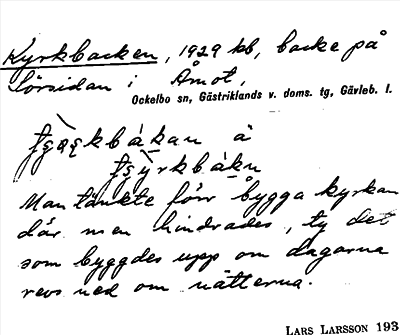 Kyrkbacken, 1929 kb, backe på
Sörsidan i Åmot,
Ockelbo sn, Gästriklands v. doms. tg, Gävleb. l.
å
Man tänkte förr bygga kyrkan
där men hindrades, ty det
som byggdes upp om dagarna
revs ned om nätterna.
LARS LARSSON 193